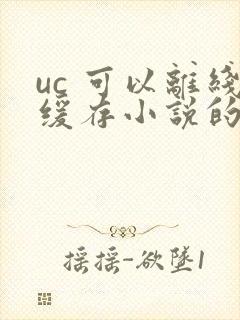 uc 可以離綫
缓存小說的
摇摇-欲墜1